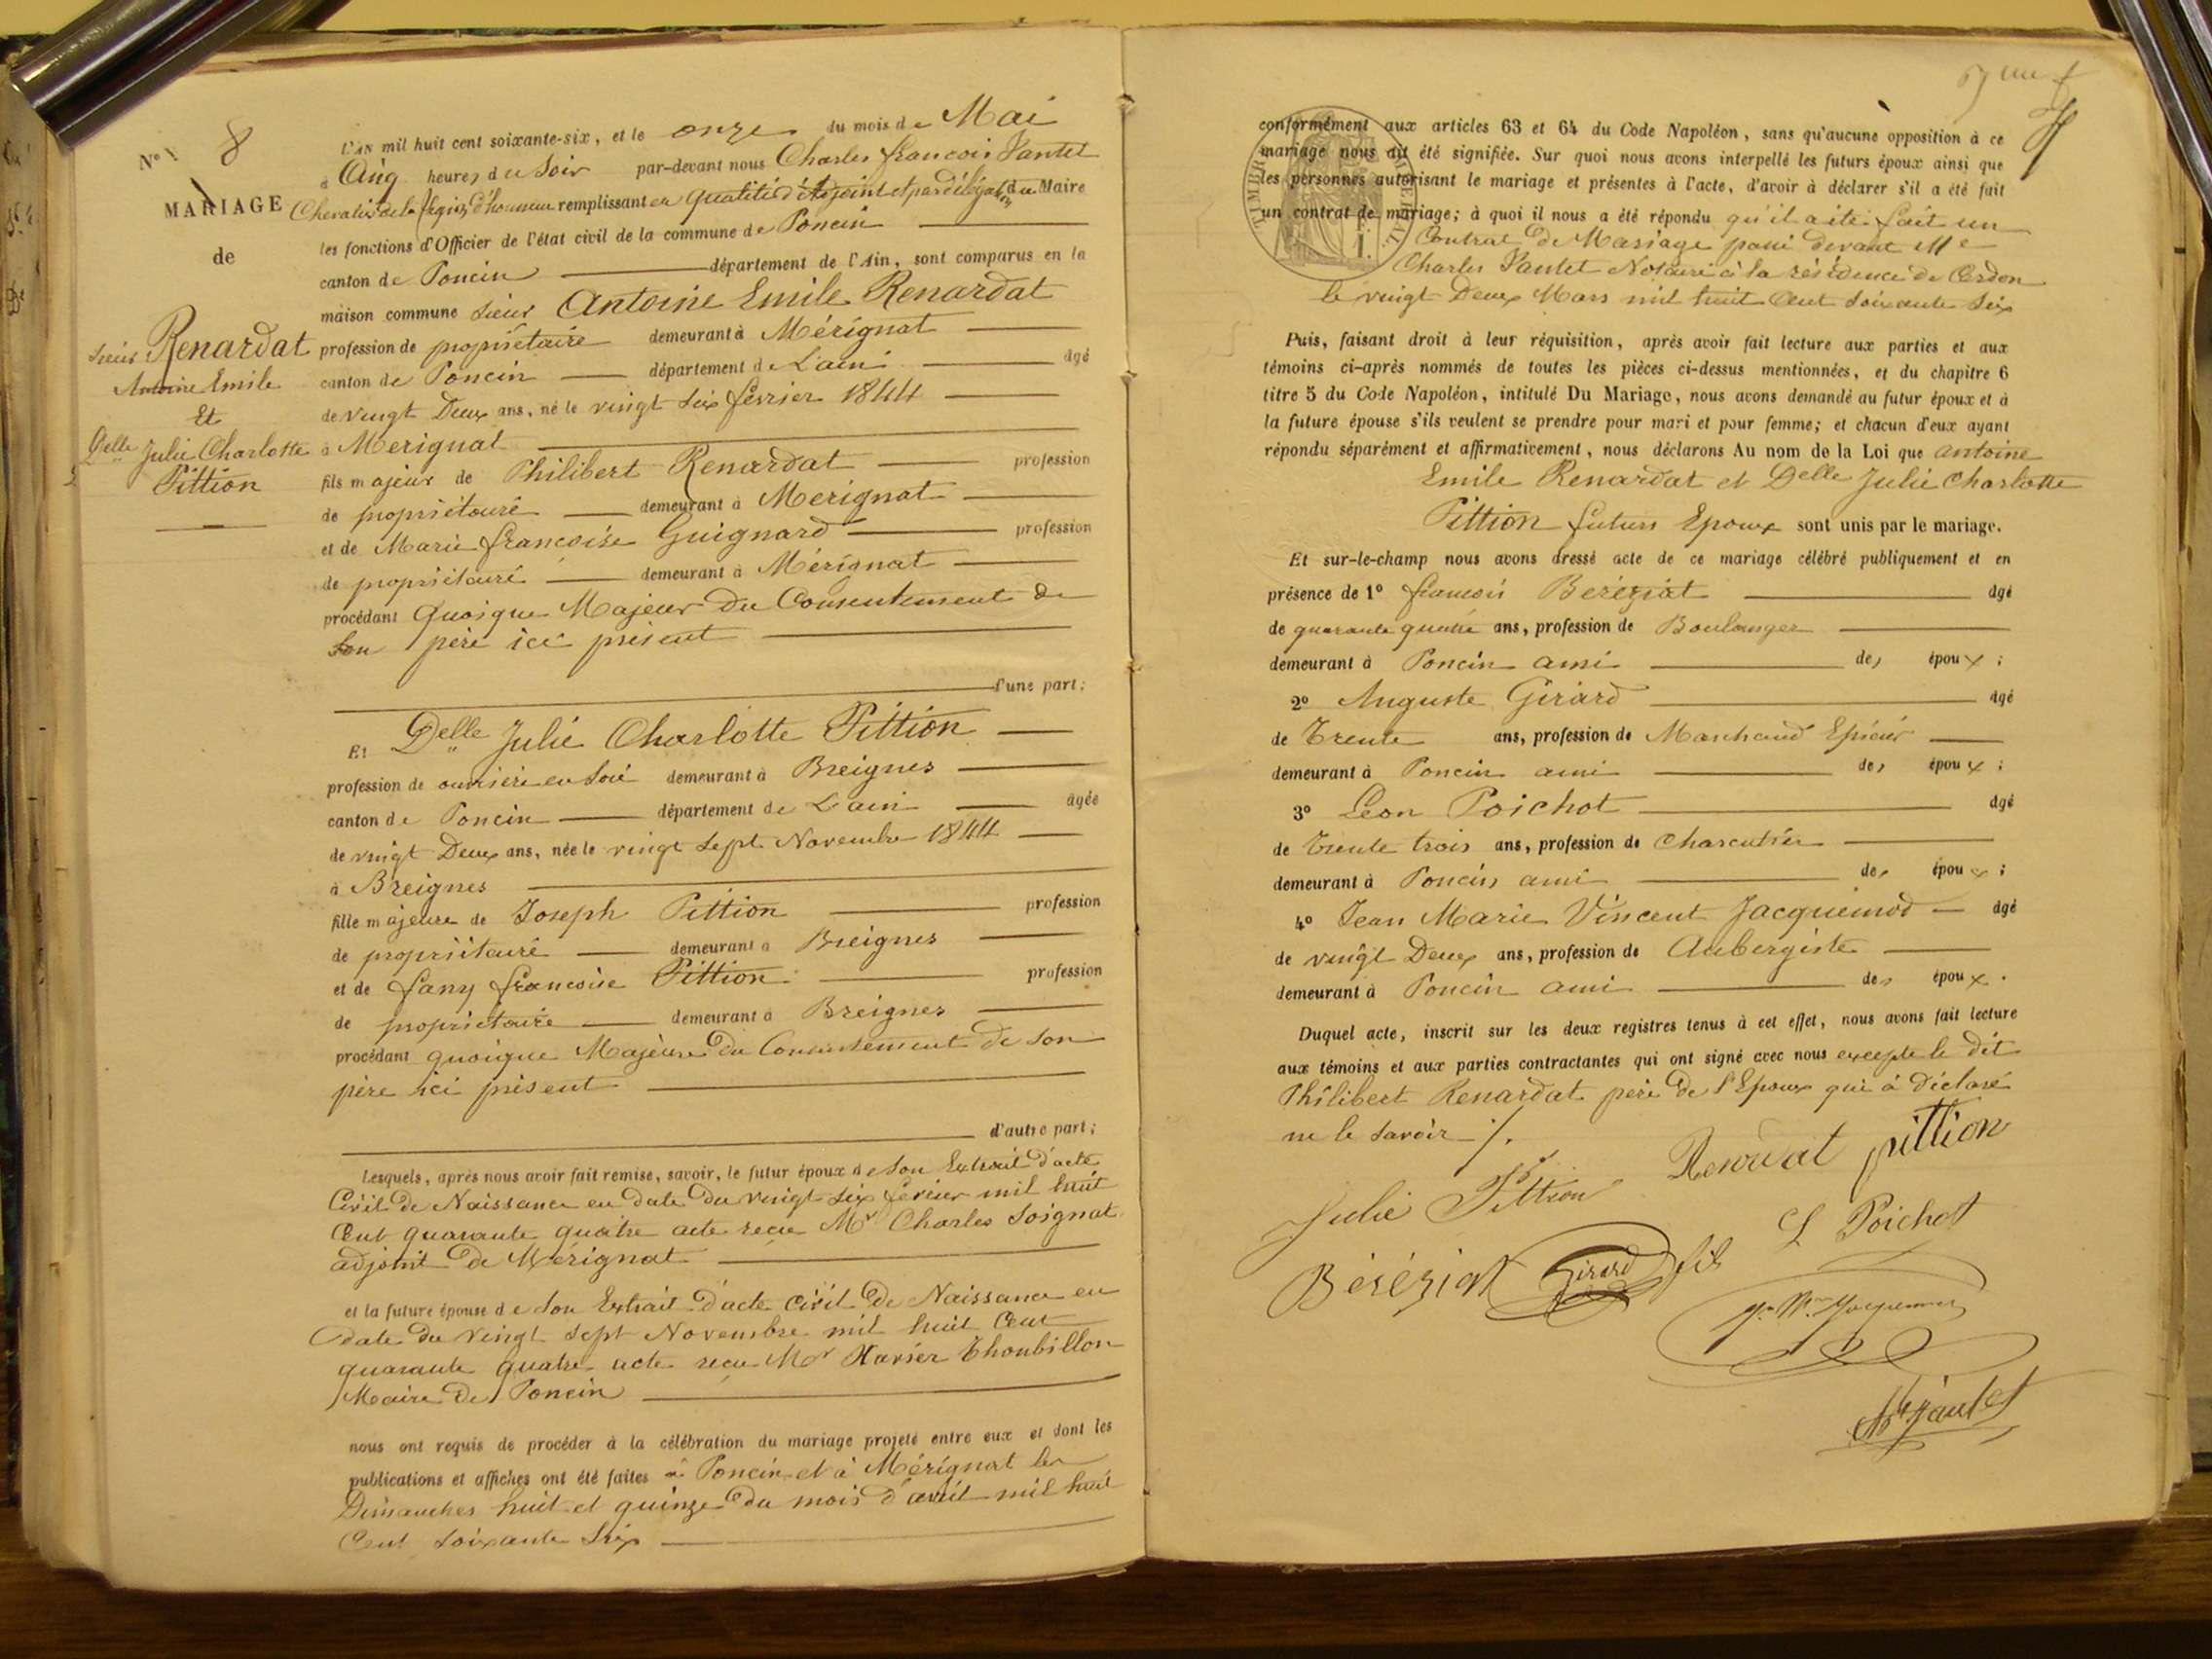 N° 8
MARIAGE
de
sieur Renardat
Antoine Emile
Et
Delle Julie Charlotte
Pittion
L'AN mil huit cent soixante-six, et le onze du mois de Mai
à Cinq heures du Soir par-devant nous Charles françois Jantet
Chevalier de la légion d'honneur remplissant en qualité d'adjoint et par délégation du Maire
les fonctions d'Officier de l'état civil de la commune de Poncin
canton de Poncin département de l'Ain, sont comparus en la
maison commune sieur Antoine Emile Renardat
profession de propriétaire demeurant à Mérignat
canton de Poncin département de L'ain âgé
de vingt Deux ans, né le vingt six février 1844
à Merignat
fils majeur de Philibert Renardat profession
de propriétaire demeurant à Merignat
et de Marie françoise Guignard profession
de propriétaire demeurant à Mérignat
procédant quoique Majeur du Consentement de
son père ici présent
d'une part;
Et Delle Julie Charlotte Pittion
profession de ouvrière en soie demeurant à Breignes
canton de Poncin département de L'ain âgée
de vingt Deux ans, née le vingt sept Novembre 1844
à Breignes
fille majeure de Joseph Pittion profession
de propriétaire demeurant à Breignes
et de fany françoise Pittion profession
de propriétaire demeurant à Breignes
procédant quoique Majeure du Consentement de son
père ici présent
d'autre part;
Lesquels, après nous avoir fait remise, savoir, le futur époux de son Extrait d'acte
Civil de Naissance en date du vingt six février mil huit
Cent quarante quatre acte reçu Mr Charles Soignat
adjoint de Mérignat
et la future épouse de son Extrait d'acte civil de Naissance en
date du vingt sept Novembre mil huit Cent
quarante quatre acte reçu Mr Xavier Thoubillon
Maire de Poncin
nous ont requis de procéder à la célébration du mariage projeté entre eux et dont les
publications et affiches ont été faites à Poncin et à Mérignat les
Dimanches huit et quinze du mois d'avril mil huit
Cent soixante Six
conformément aux articles 63 et 64 du Code Napoléon, sans qu'aucune opposition à ce
mariage nous ait été signifiée. Sur quoi nous avons interpellé les futurs époux ainsi que
les personnes autorisant le mariage et présentes à l'acte, d'avoir à déclarer s'il a été fait
un contrat de mariage; à quoi il nous a été répondu qu'il a été fait un
Contrat de Mariage passé devant Me
Charles Jantet Notaire à la résidence de Cerdon
le vingt Deux Mars mil huit Cent soixante Six
Puis, faisant droit à leur réquisition, après avoir fait lecture aux parties et aux
témoins ci-après nommés de toutes les pièces ci-dessus mentionnées, et du chapitre 6
titre 5 du Code Napoléon, intitulé Du Mariage, nous avons demandé au futur époux et à
la future épouse s'ils veulent se prendre pour mari et pour femme; et chacun d'eux ayant
répondu séparément et affirmativement, nous déclarons Au nom de la Loi que antoine
Emile Renardat et Delle Julie Charlotte
Pittion futurs Epoux sont unis par le mariage.
Et sur-le-champ nous avons dressé acte de ce mariage célébré publiquement et en
présence de 1° françois Bereziat âgé
de quarante quatre ans, profession de Boulanger
demeurant à Poncin ami des époux;
2° Auguste Girard âgé
de Trente ans, profession de Marchand Epicier
demeurant à Poncin ami des époux;
3° Leon Poichot âgé
de Trente trois ans, profession de Charcutier
demeurant à Poncin ami des époux;
4° Jean Marie Vincent Jacquemod âgé
de vingt Deux ans, profession de Aubergiste
demeurant à Poncin ami des époux.
Duquel acte, inscrit sur les deux registres tenus à cet effet, nous avons fait lecture
aux témoins et aux parties contractantes qui ont signé avec nous excepté le dit
Philibert Renardat père de l'Epoux qui à déclaré
ne le savoir ./.
Renardat pittion
Julie Pittion
L Poichot
Béréziat Girard fils
Jantet